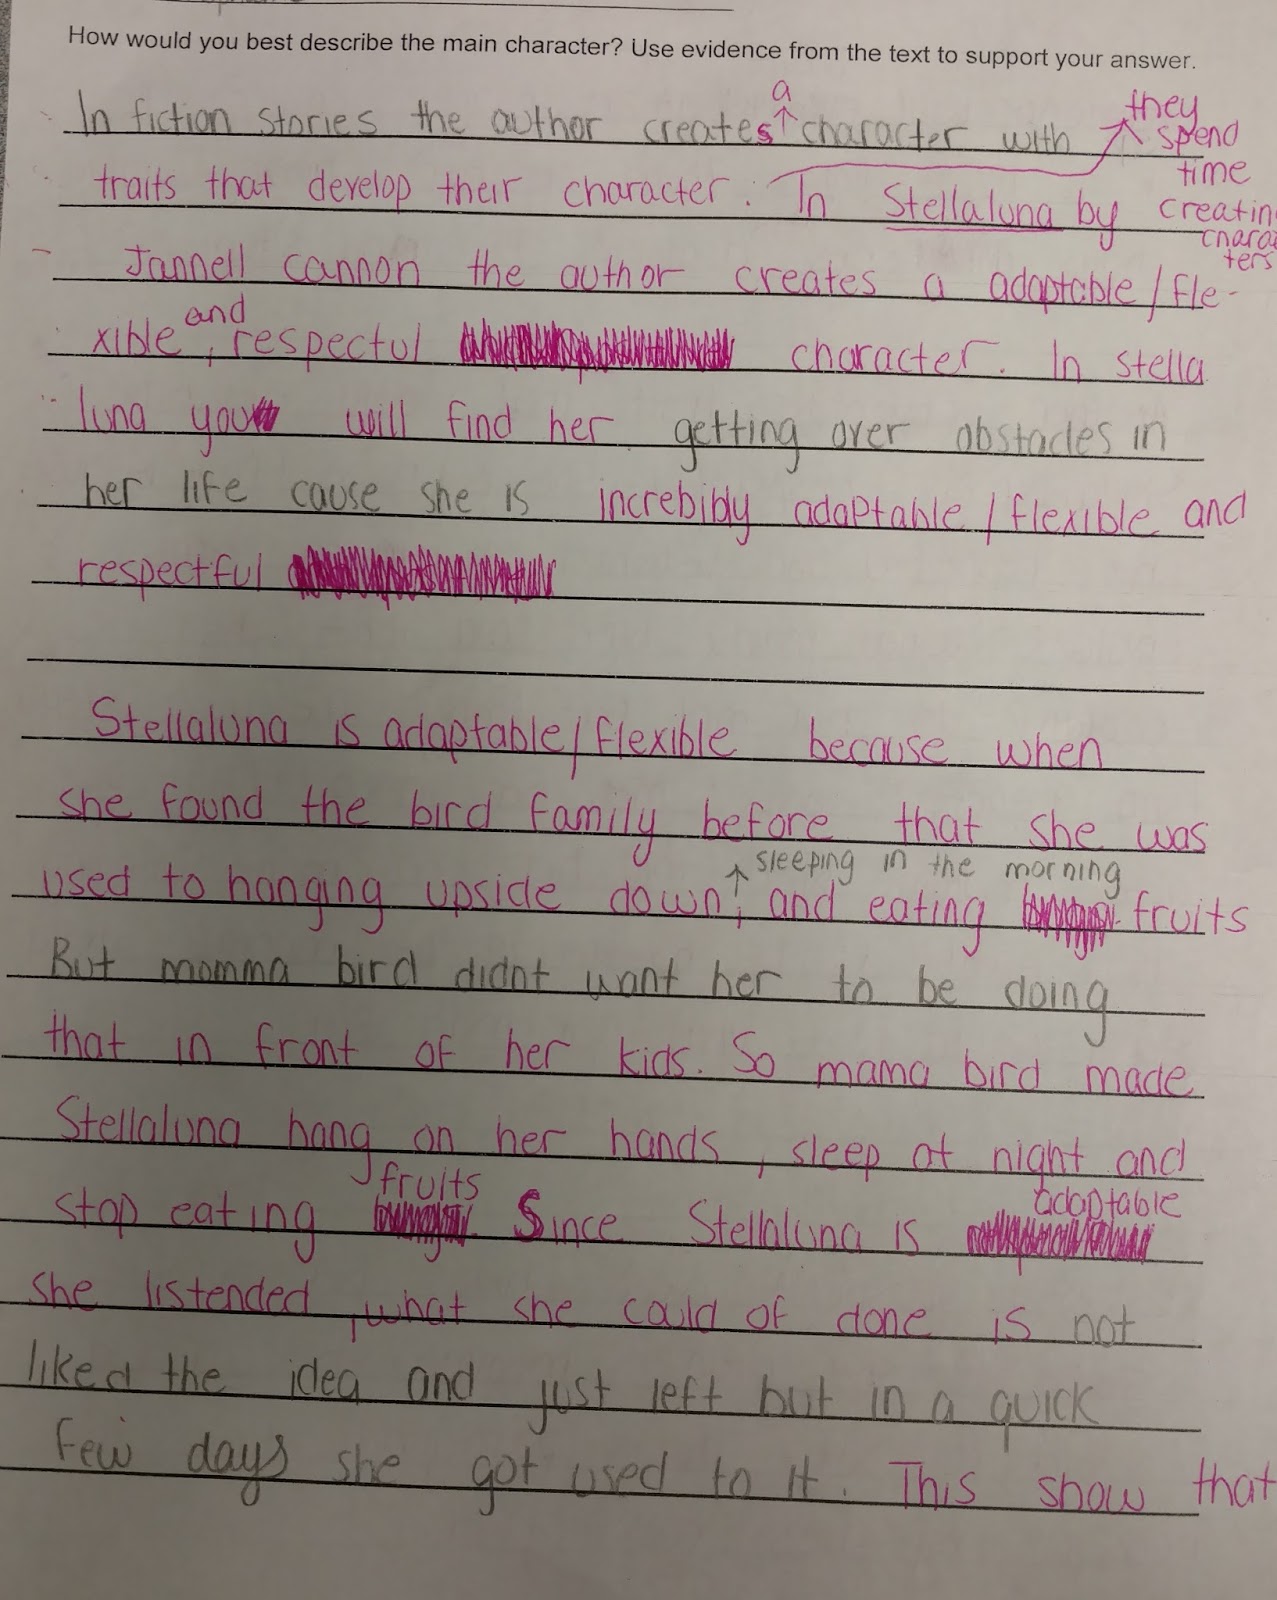 How would you best describe the main character? Use evidence from the text to support your answer.
a
they
In fiction stories the author creates character with spend
time
traits that develop their character. In Stellaluna by creatin
charac
ters
Jannell cannon the author creates a adaptable/fle-
and
xible, respectul character. In stella
luna you will find her getting over obstacles in
her life cause she is increbibly adaptable/flexible and
respectful
Stellaluna is adaptable/flexible because when
she found the bird family before that she was
sleeping in the morning
used to hanging upside down, and eating fruits
But momma bird didnt want her to be doing
that in front of her kids. So mama bird made
Stellaluna hang on her hands, sleep at night and
fruits
adaptable
stop eating Since Stellaluna is
she listended, what she could of done is not
liked the idea and just left but in a quick
few days she got used to it. This show that